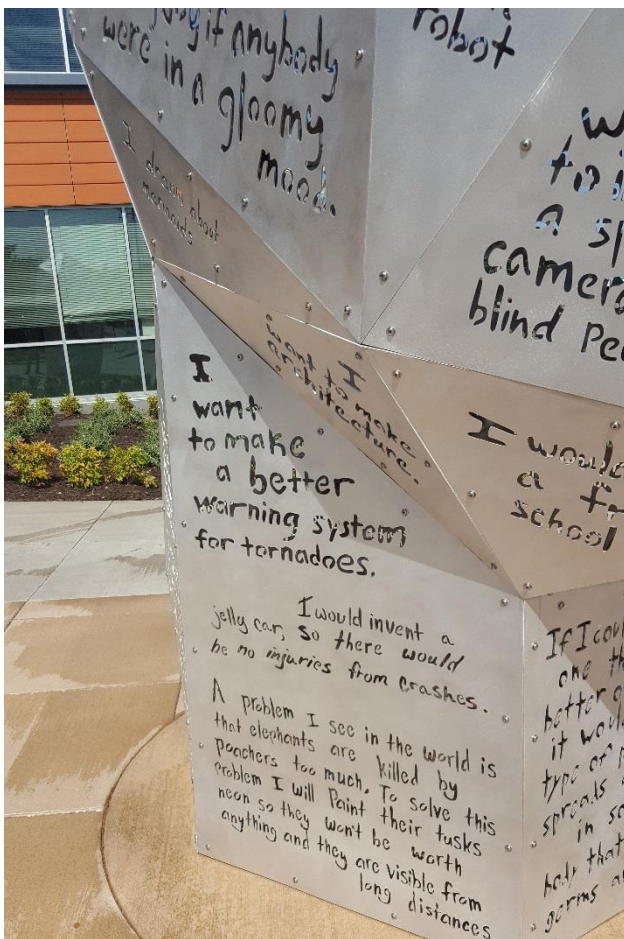 if anybody
were in a
gloomy
mood.
robot
I dream about
mermaids
a
camera
blind
I
want to make
architecture.
I
want
to make
a better
warning system
for tornadoes.
I would
a
school
I would invent a
jelly car, so there would
be no injuries from crashes.
A problem I see in the world is
that elephants are killed by
poachers too much. To solve this
problem I will Paint their tusks
neon so they won't be worth
anything and they are visible from
long distances
If I
one
better
it
type of
spreads
in
body that
germs